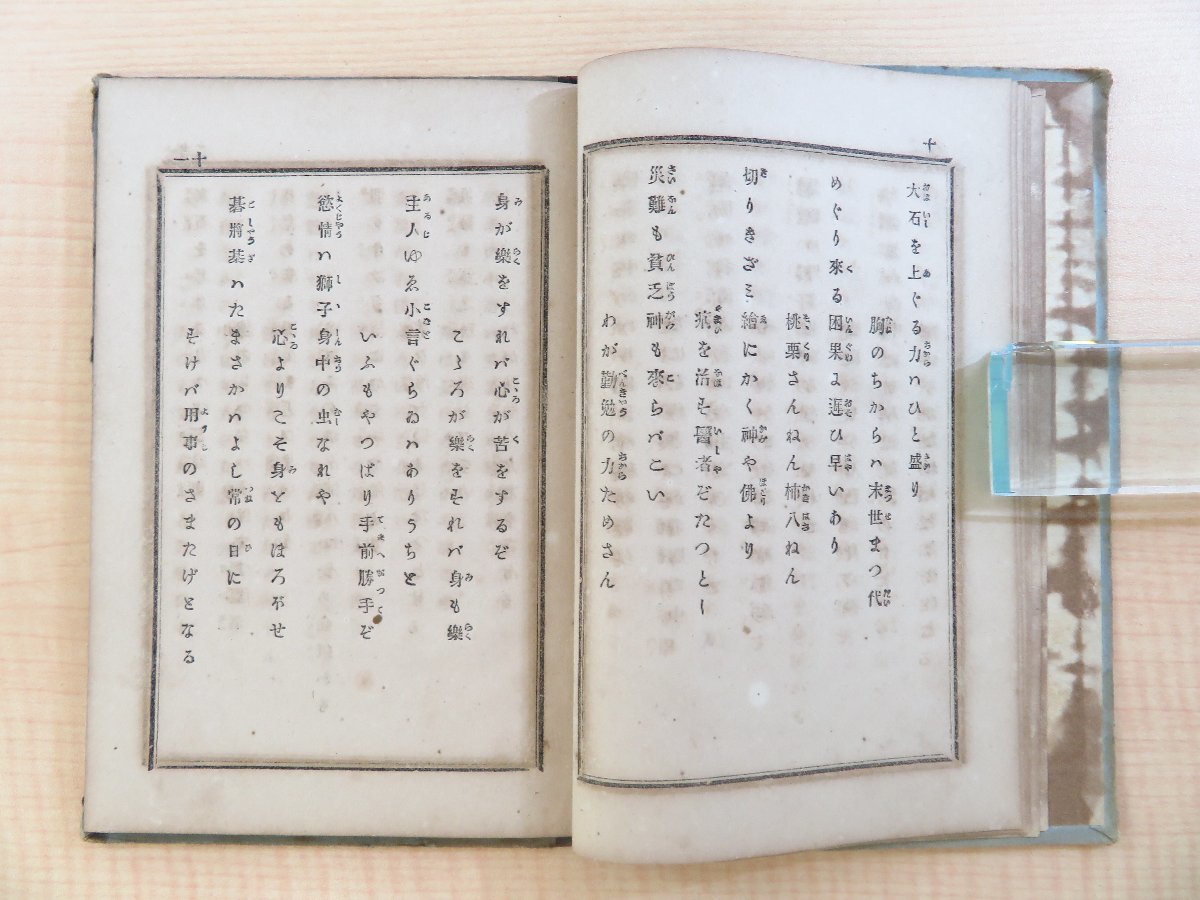 十
大石を上ぐる力ハひと盛り
胸のちからハ末世まつ代
めぐり來る因果ま遲ひ早いあり
桃栗さんねん柿八ねん
切りきざミ繪にかく神や佛より
病を治す醫者ぞたつとし
災難も貧乏神も來らバこい
わが勤勉の力ためさん
十一
身が樂をすれバ心が苦をするぞ
こゝろが樂をすれバ身も樂
主人ゆゑ小言ぐらゐハありうちと
いふもやつぱり手前勝手ぞ
慾情ハ獅子身中の虫なれや
心よりこそ身ともほろぼせ
碁將棊ハたまさかハよし常の日に
すけバ用事のさまたげとなる